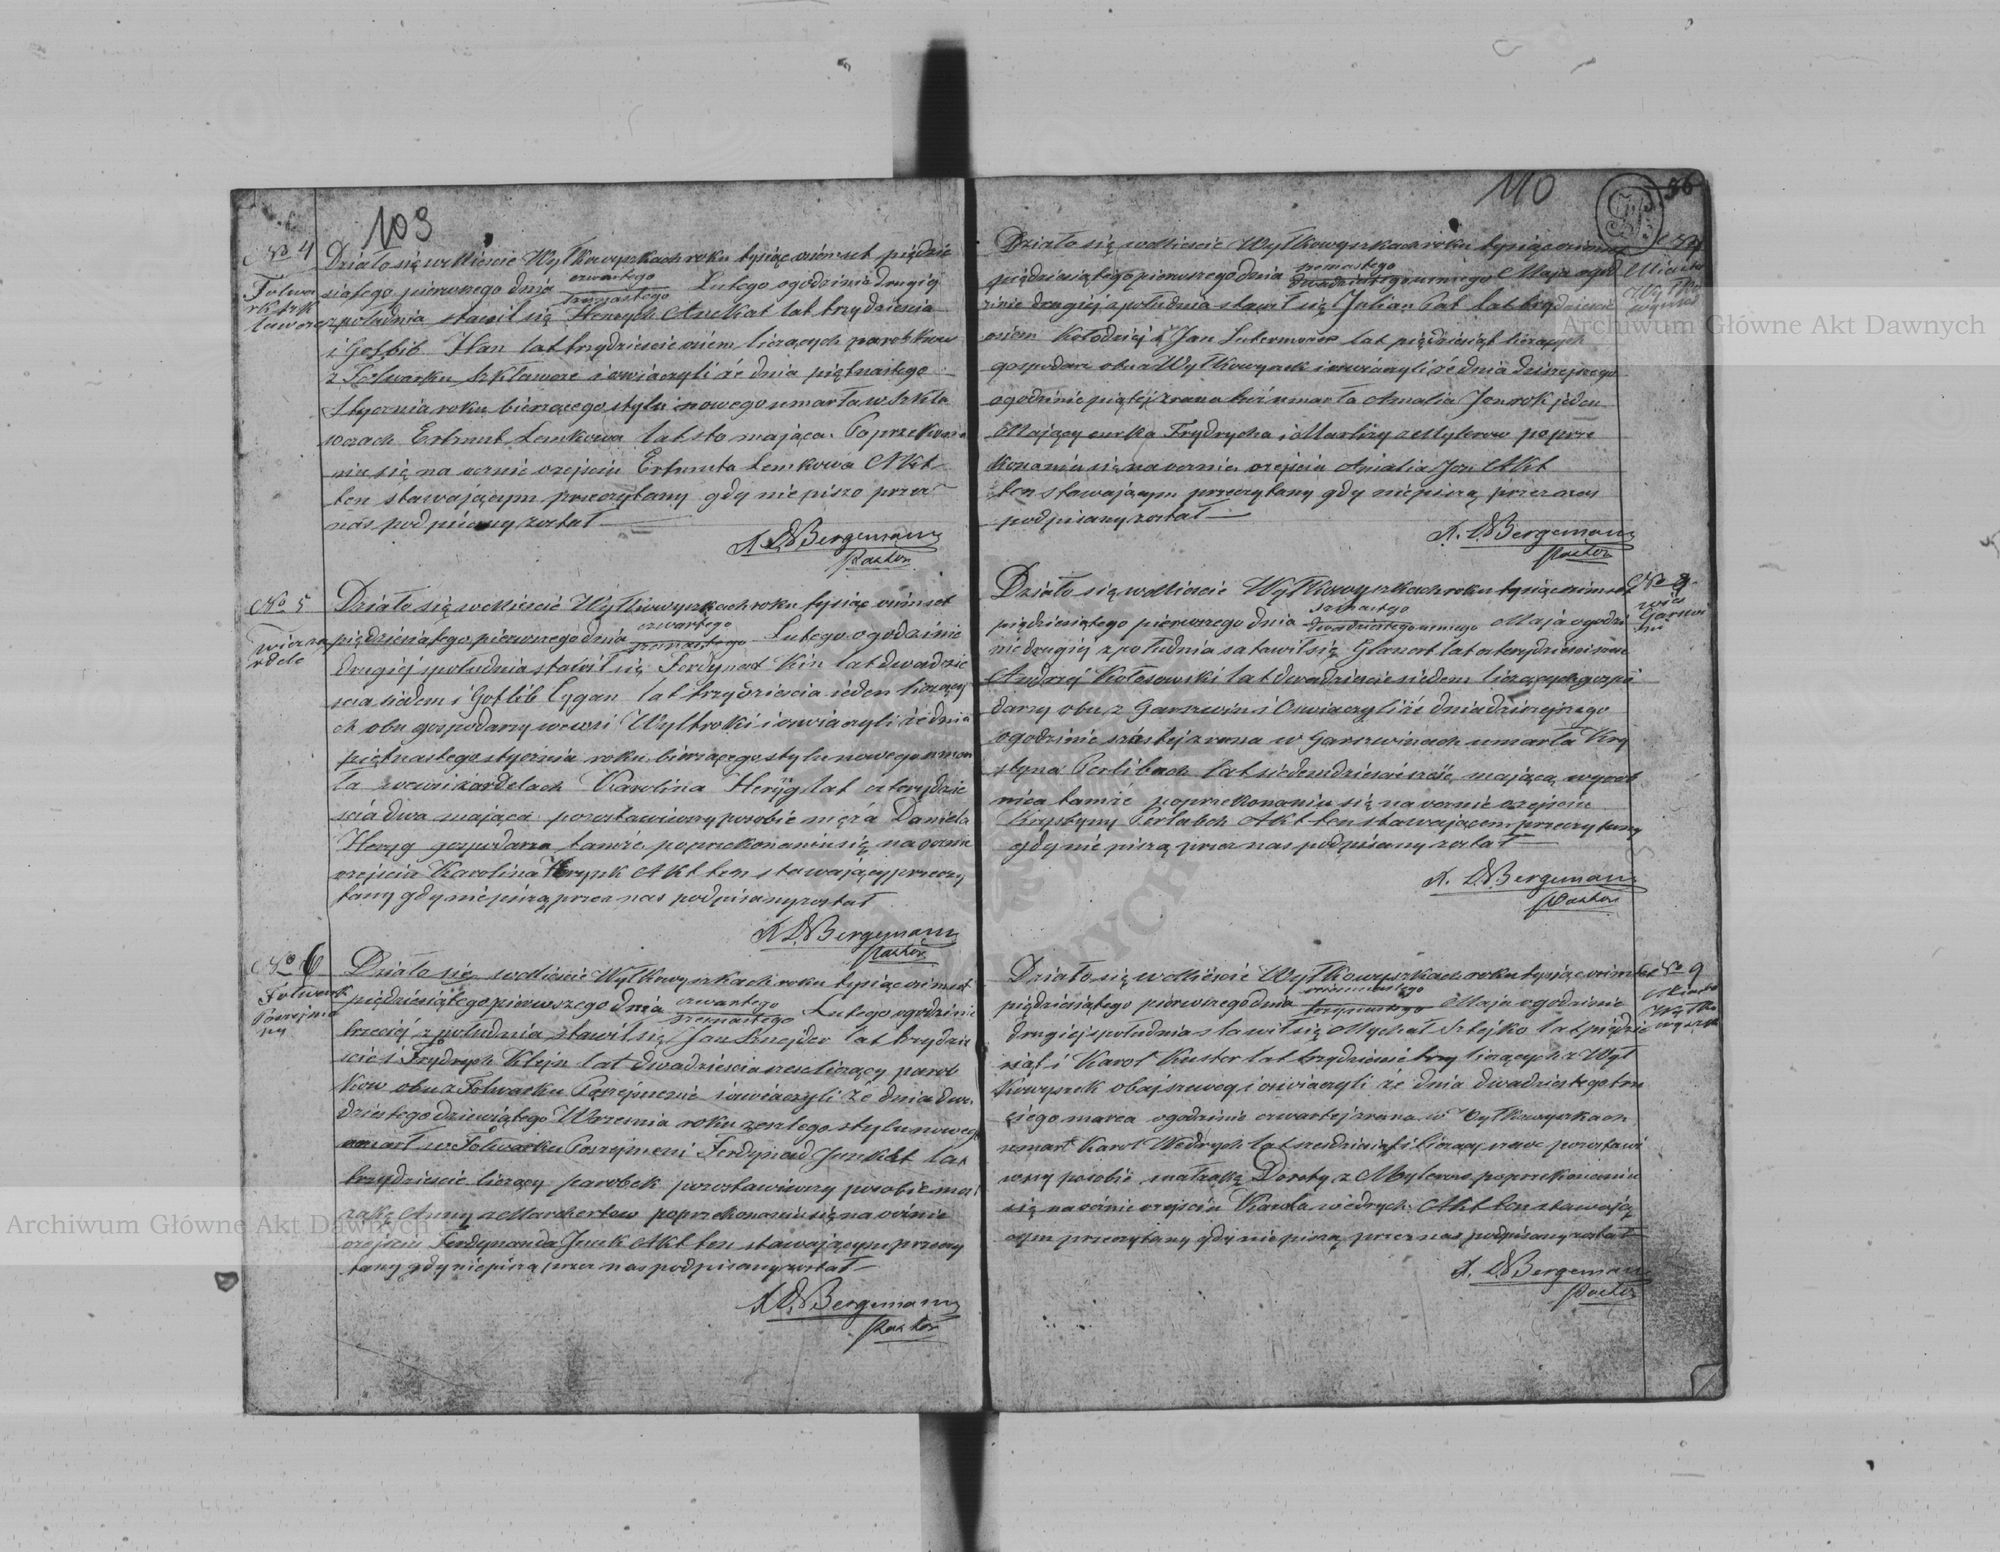 103
No 4
Folwa
rk Szk
laware
Działo się w Mieście Wyłkowyszkach roku tysiąc ośmset pięćdzie
siątego pierwszego dnia czwartego szesnastego Lutego o godzinie drugiéj
z południa stawił się Henrych Auzkat lat trzydzieścia
i Gotlib Han lat trzydzieście ośem liczących parobkow
z Folwarku Szklawore i oswiaczyli że dnia piętnastego
Stycznia roku bierzącego stylu nowego umarła w Szkla
worach Ertmut Lemkowa lat sto mająca. Po przekona
niu się na ocznie zejściu Ertmuta Lemkowa Akt
ten stawającym przeczytany gdy nie piszo przez
nas podpisany został
A. D. Bergemann
Pastor
No 5
wies za
rdele
Działo się w Mieście Wyłkowyszkach roku tysiąc ośmset
pięćdziesiątego pierwszego dnia czwartego szesnastego Lutego o godzinie
drugiéj z południa stawił się Ferdynad Kin lat dwadzie
ścia siedem i Gotlib Cygan lat trzydzieścia ieden liczący
ch obu gospodarzy we wsi Wyltroki i oswiaczyli że dnia
piętnastego stycznia roku bierzącego stylu nowego umar
ła we wsi zardelach Karolina Heryg lat czterydzie
ścia dwa mająca pozostawiwszy po sobie męża Daniela
Heryg gospodarza tamże po przekonaniu się na ocznie
zejściu Karolina Herynk Akt ten stawający przeczy
tany gdy nie piszą przez nas podpisany został
A. D. Bergemann
Pastor
No 6
Folwark
Poszejme
ny
Działo się w Mieście Wyłkowyszkach roku tysiąc ośmset
pięćdziesiątego pierwszego dnia czwartego szesnastego Lutego o godzinie
trzeciéj z południa stawił się Jan Sznejder lat trzydzie
ście i Frydrych Klejn lat dwadzieścia sześc liczący parob
kow obu z Folwarku Poszejmenie i oswiaczyli że dnia dwu
dziestego dziewiątego Wrzesnia roku zeszłego stylu nowego
umarł w Folwarku Poszejmeni Ferdynad Junkat lat
trzydzieście liczący parobek pozostawiwszy po sobie mał
żąkę Anny z Marchertow po przekonaniu się na ocznie
zejściu Ferdynanda Junk Akt ten stawającym przeczy
tany gdy nie piszą przez nas podpisany został
A. D. Bergemann
Pastor
110
56
Miasto
Wyłko
wyszki
Działo się w Mieście Wyłkowyszkach roku tysiąc ośmset
pięćdziesiątego pierwszego dnia szesnastego dwudziestego ósmego Maja o god
zinie drugiéj z południa stawił się Julian Pal lat trzydzieście
ośiem Kołodziéj i Jan Lutermoza lat pięćdziesiąt liczących
gospodarz obu z Wyłkowyszek i oswiaczyli że dnia dzisiejszego
o godzinie piątéj z rana umarła Amalia Jon rok jeden
Mający curka Frydrycha i Marlizy z Mylerow po prze
konaniu się na ocznie zejścia Amalia Jon Akt
ten stawającym przeczytany gdy nie piszą przez nas
podpisany został
A. D. Bergemann
Pastor
No 8
wies
Garszwi
ni
Działo się w Mieście Wyłkowyszkach roku tysiąc ośmset
pięćdziesiątego pierwszego dnia szesnastego dwudziestego ósmego Maja o godzi
nie drugiéj z południa stawił się Glanert lat czterydzieści
Andrzéj Kolesowski lat dwadzieście siedem liczących gospo
darzy obu z Garszwin i Oswiaczyli że dnia dzisiejszego
o godzinie szóstej z rana w Garszwinach umarła Kry
styna Perlibach lat siedemdzieście sześć mająca wyrob
nica tamże po przekonaniu się na ocznie zejściu
Krystyny Perlabch Akt ten stawającem przeczytany
gdy nie piszą przez nas podpisany został
A. D. Bergemann
Pastor
No 9
Miasto
Wyłko
wyszki
Działo się w Mieście Wyłkowyszkach roku tysiąc ośmset
pięćdziesiątego pierwszego dnia Maja o godzinie
drugiej z południa stawił się Mychał Sztejko lat pięćdzie
siąt i Karol Kuster lat trzydzieście trzy liczących z Wył
kowyszek obaj szewcy i oswiaczyli że dnia dwadziestego trze
ciego marca o godzinie czwartej z rana w Wyłkowyszkach
umarł Karol Wedrych lat sześdziesiąt i liczący szewc pozostawi
wszy po sobie małżąkę Doroty z Mylerow po przekonaniu
się na ocznie zejściu Karola wedrych. Akt ten stawają
cym przeczytany gdy nie piszą przez nas podpisany został
A. D. Bergemann
Pastor
Archiwum Główne Akt Dawnych
Archiwum Główne Akt Dawnych